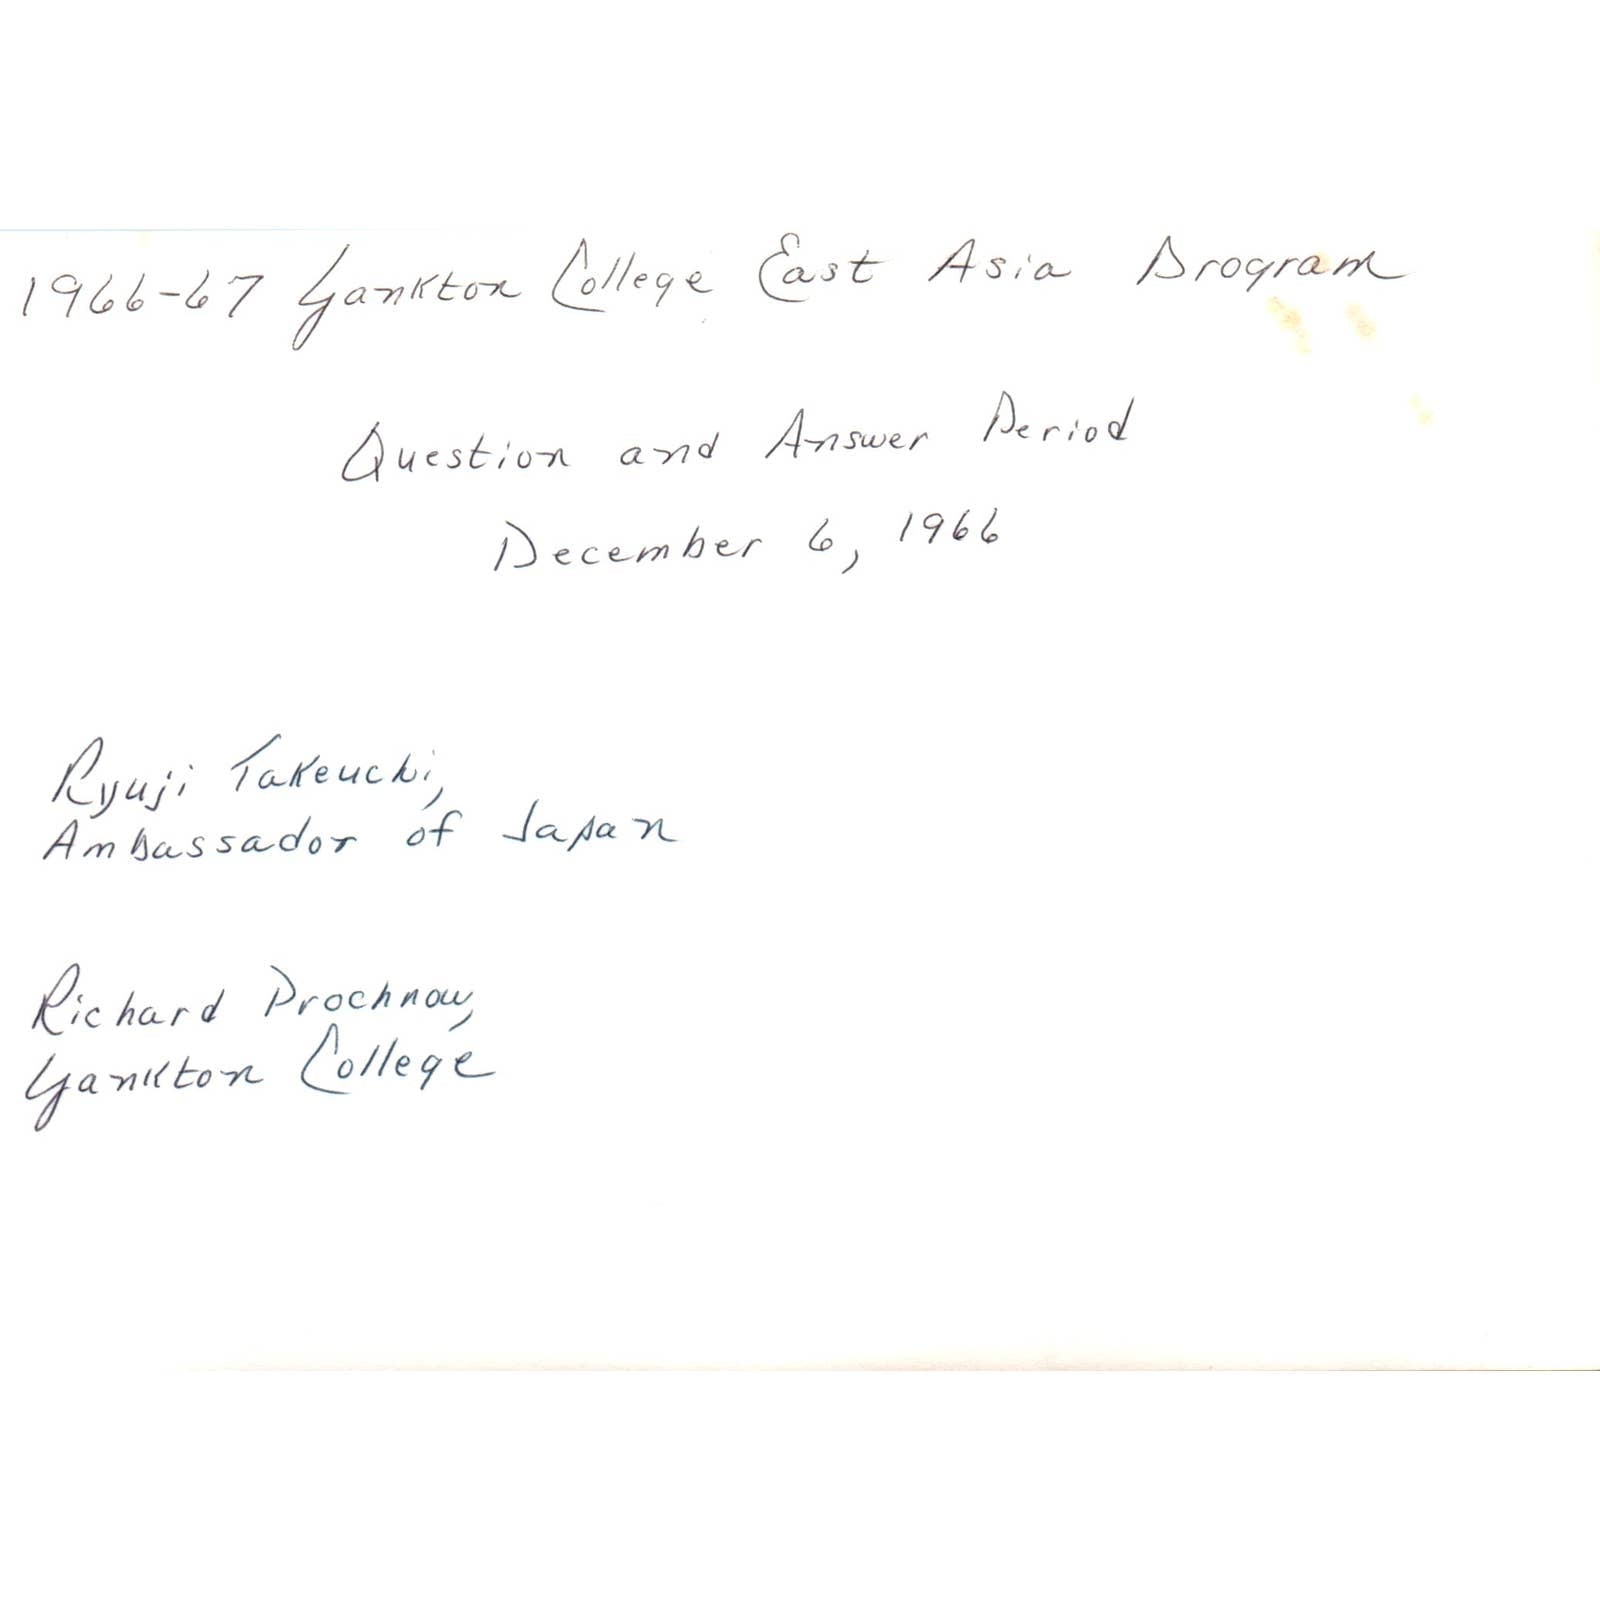 1966-67 Yankton College East Asia Program
Question and Answer Period
December 6, 1966
Ryuji Takeuchi,
Ambassador of Japan
Richard Prochnow,
Yankton College